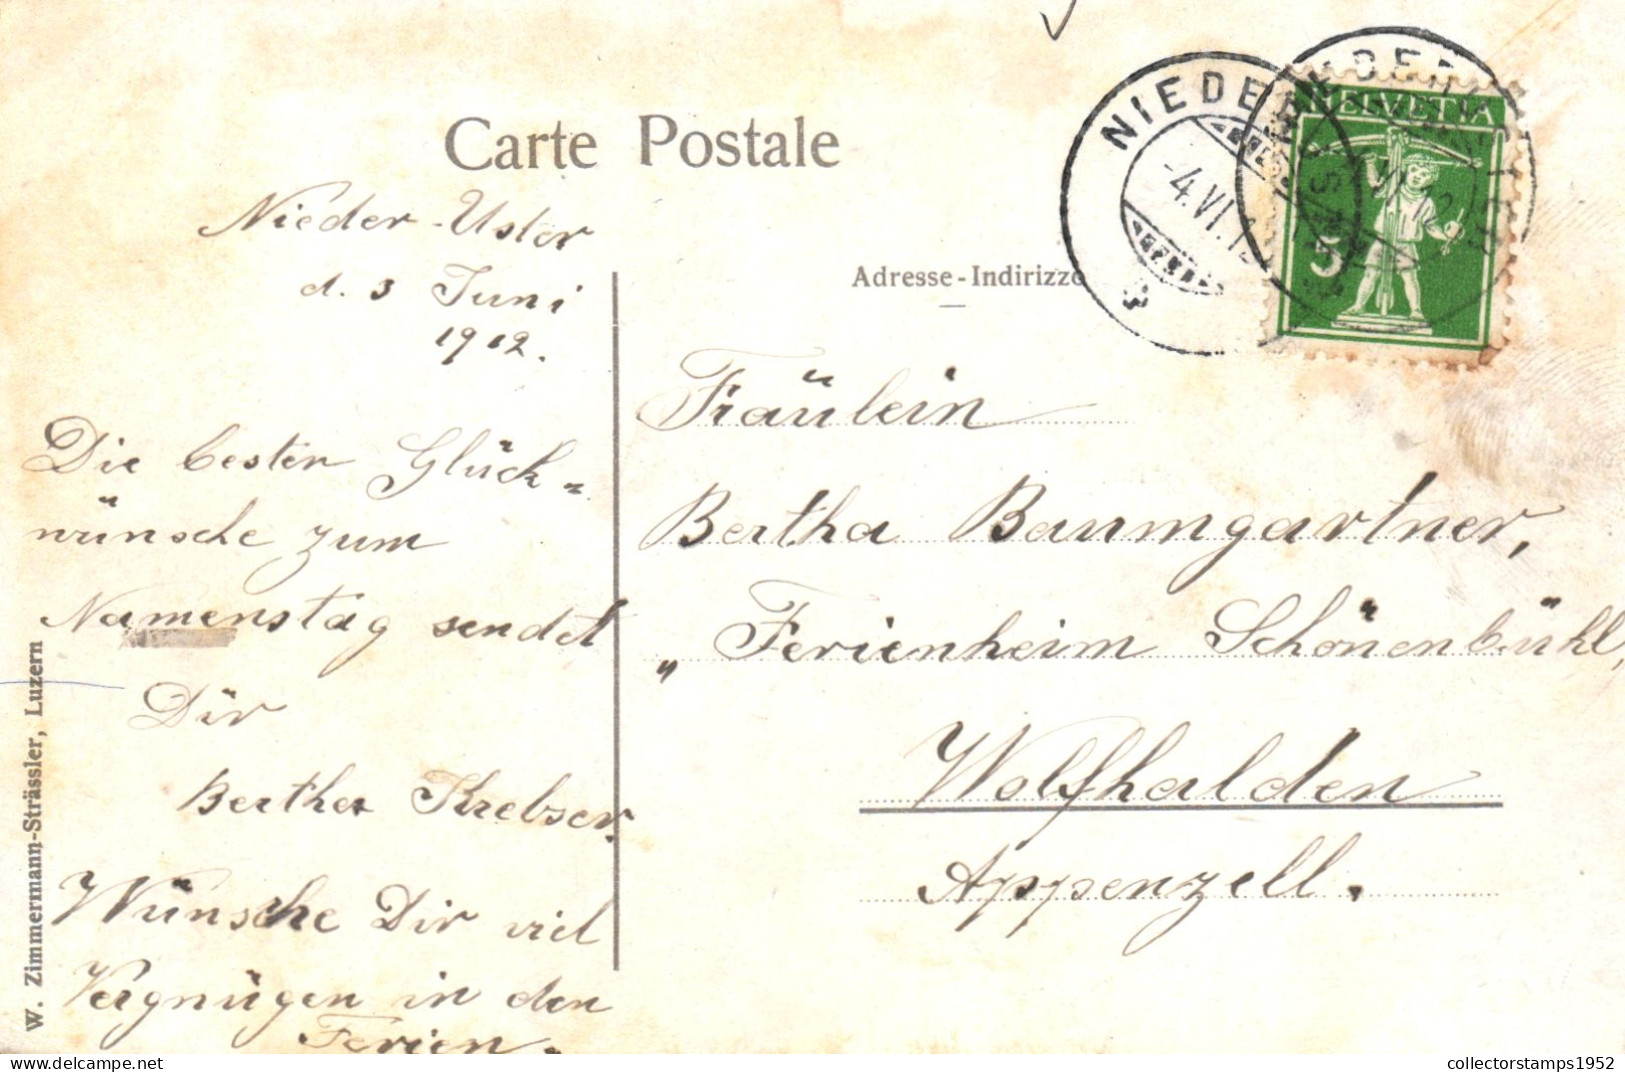 Carte Postale
NIEDE
-4.VI.1
HELVETIA
5
Adresse-Indirizzo
Nieder-Uster
d. 3 Juni
1912.
Die besten Glück=
wünsche zum
Namenstag sendet
Dir
Bertha Krebser.
Wünsche Dir viel
Vergnügen in den
Ferien.
Fräulein
Bertha Baumgartner,
„Ferienheim Schönenbühl,
Wolfhalden
Appenzell.
W. Zimmermann-Strässler, Luzern
delcampe.net
collectorstamps1952